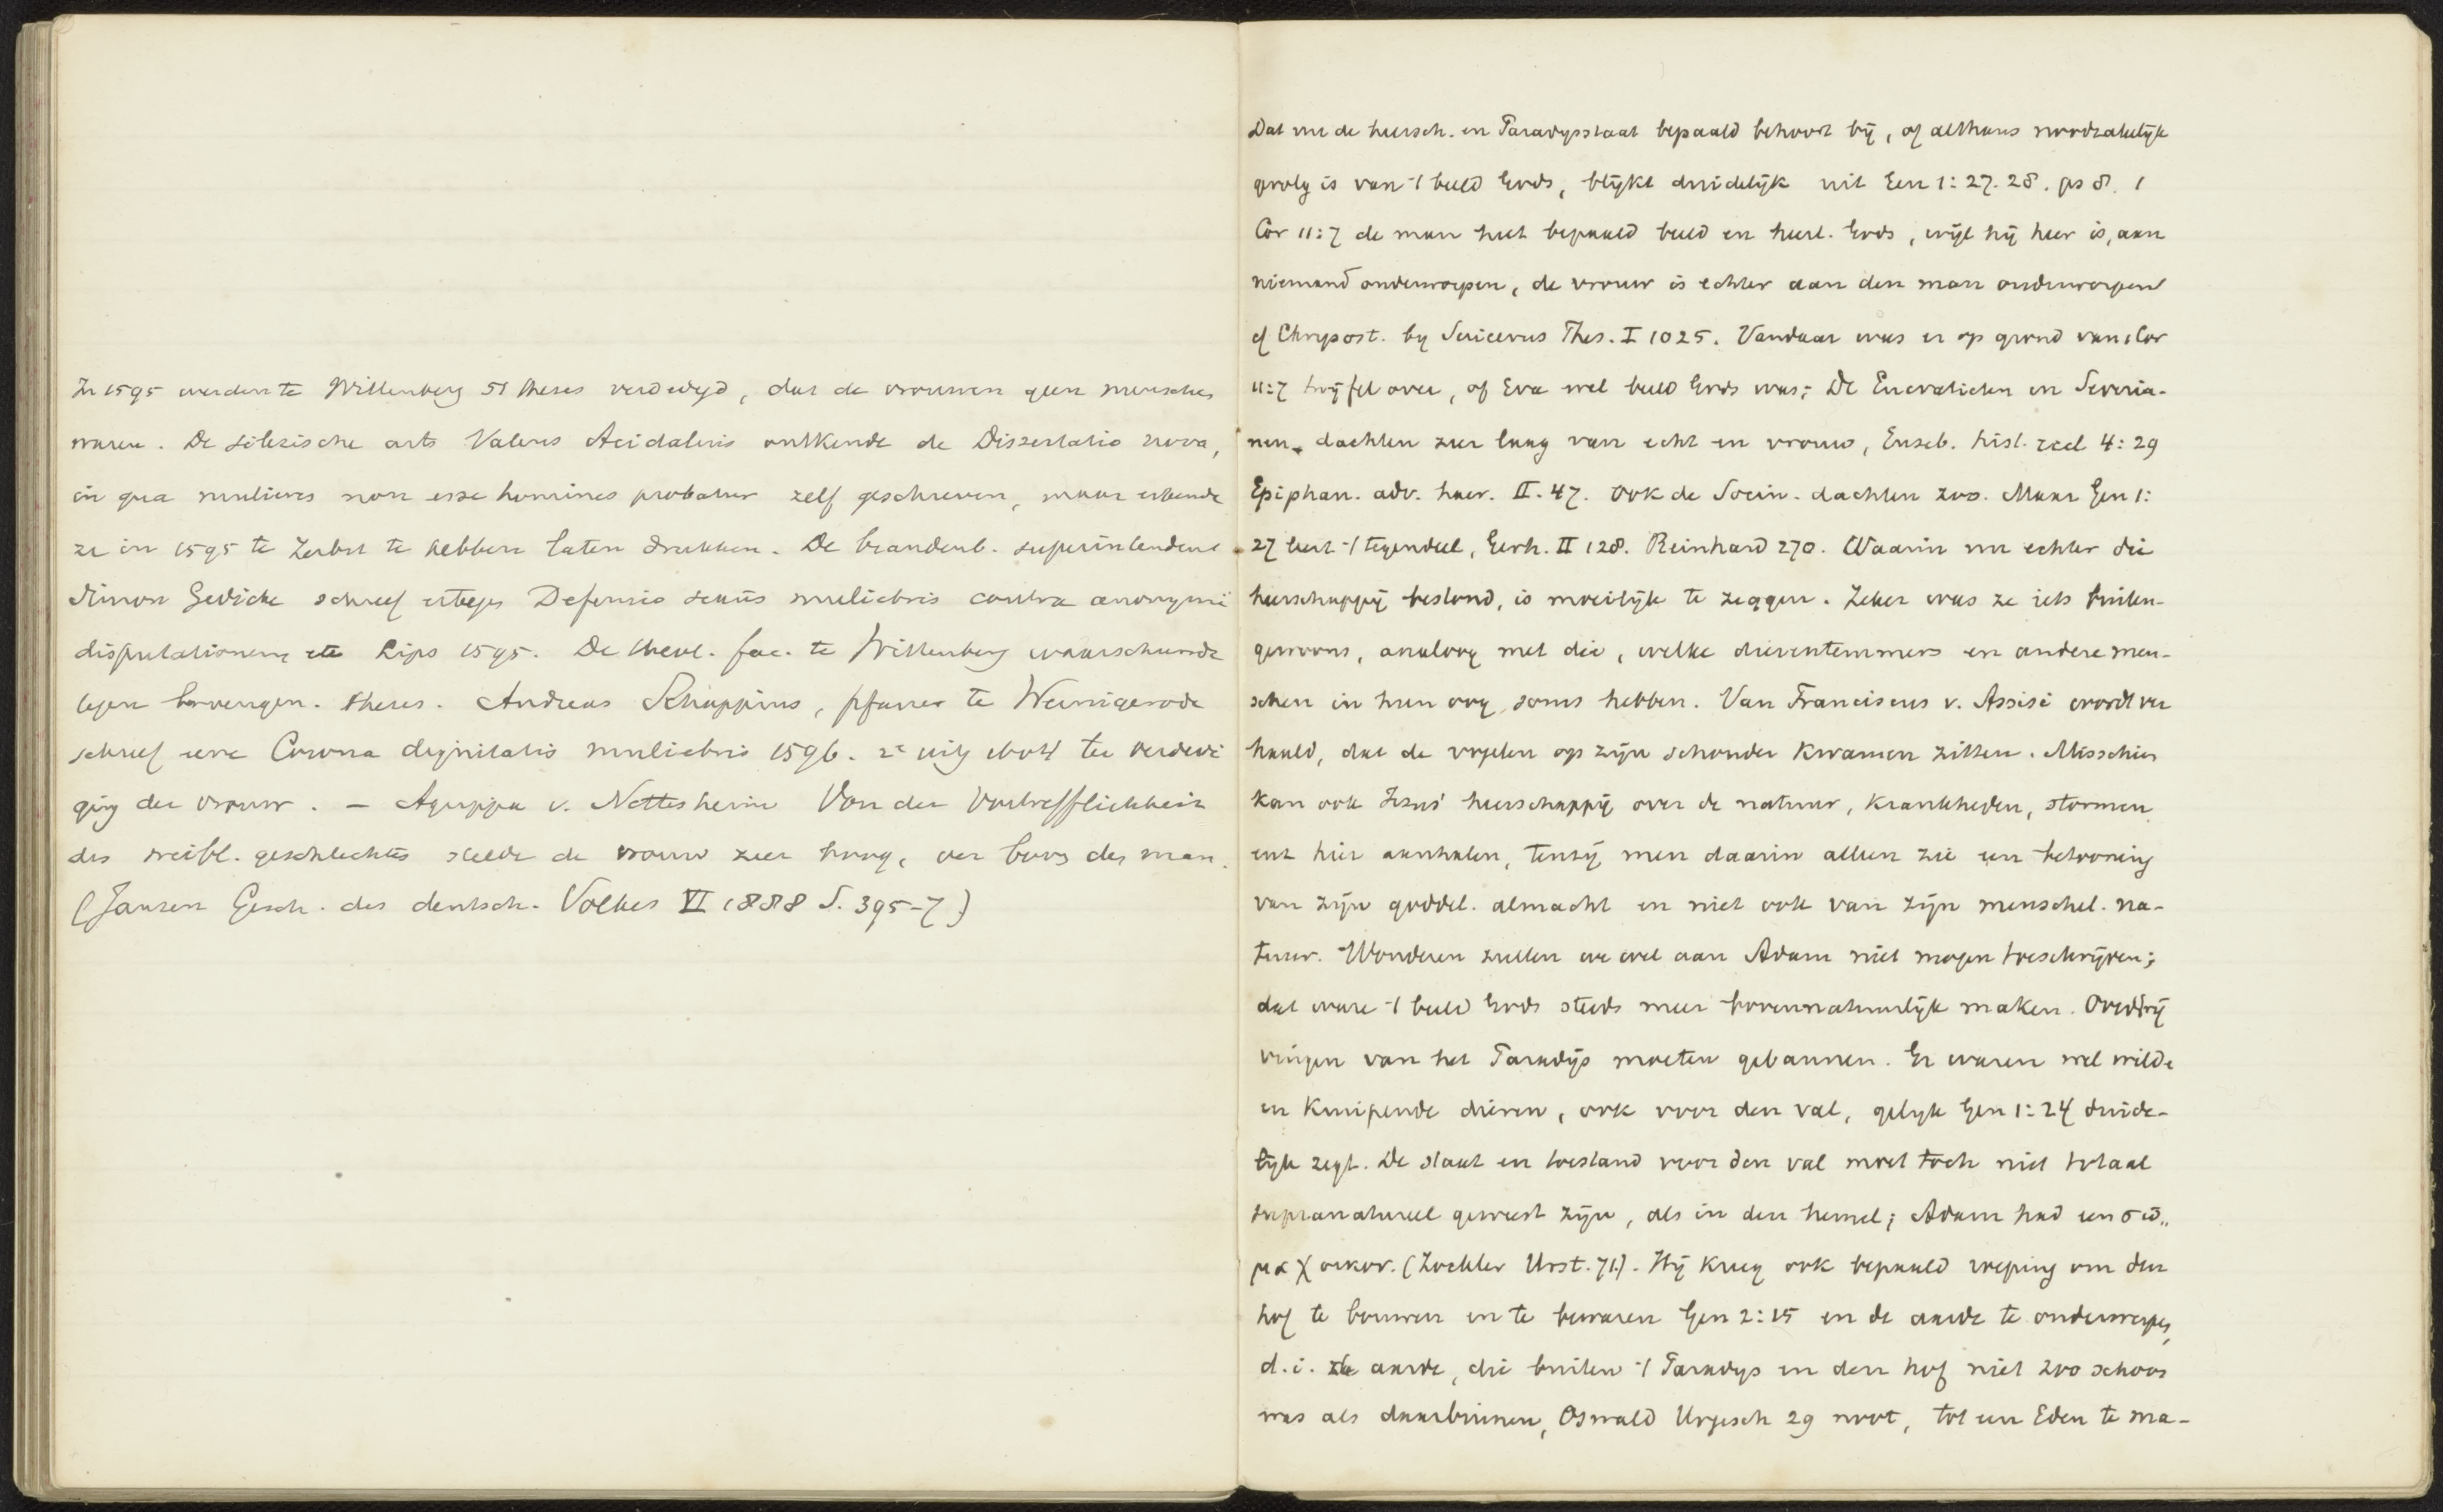 In 1595 werden te Wittenberg 51 theses verdedigd, dat de vrouwen geen menschen
waren. De silezische arts Valens Acidalius ontkende de Dissertatio nova,
in qua mulieres non esse homines probatur zelf geschreven, maar erkende
ze in 1595 te Zerbst te hebben laten drukken. De brandenb. superintendent
Simon Gedicke schreef ertegen Defensio sexus muliebris contra anonymi
disputationem etc Lips 1595. De theol. fac. te Wittenberg waarschuwde
tegen bovengen. theses. Andreas Schoppius, pfarrer te Wernigerode
schreef eene Corona dignitatis muliebris 1596. 2e uitg 1604 ter verdedi
ging der vrouw. — Agrippa v. Nettesheim Von der Vortrefflichkeit
des weibl. geschlechtes stelde de vrouw zeer hoog, ver boven den man.
(Jansen Gesch. des deutsch. Volkes VI 1888 S. 395-7)
Dat nu de heersch. en Paradijsstaat bepaald behoort bij, of althans noodzakelijk
gevolg is van 't beeld Gods, blijkt duidelijk uit Gen 1:27. 28. ps 8. 1
Cor 11:7 de man heet bepaald beeld en heerl. Gods, wijl hij heer is, aan
niemand onderworpen, de vrouw is echter aan den man onderworpen
cf Chrysost. by Suicerus Thes. I 1025. Vandaar was er op grond van 1 Cor
11:7 twijfel over, of Eva wel beeld Gods was; De Encratieten en Severia-
nen dachten zeer laag van echt en vrouw, Euseb. hist. eccl 4:29
Epiphan. adv. haer. II. 47. Ook de Socin. dachten zoo. Maar Gen 1:
27 leert 't tegendeel, Gerh. II 128. Reinhard 270. Waarin nu echter die
heerschappij bestond, is moeilijk te zeggen. Zeker was ze iets buiten-
gewoons, analoog met die, welke dierentemmers en andere men-
schen in hun oog soms hebben. Van Franciscus v. Assisi wordt ver
haald, dat de vogelen op zijn schouder kwamen zitten. Misschien
kan ook Jezus' heerschappij over de natuur, krankheden, stormen
ens hier aanhalen, tenzij men daarin alleen zie een betooning
van zijn goddel. almacht en niet ook van zijn menschel. na-
tuur. Wonderen zullen we wel aan Adam niet mogen toeschrijven;
dat ware 't beeld Gods steeds meer bovennatuurlijk maken. Overdrij
vingen van het Paradijs moeten gebannen. Er waren wel wilde
en kruipende dieren, ook voor den val, gelijk Gen 1:24 duide-
lijk zegt. De staat en toestand voor den val moet toch niet totaal
supranatureel geweest zijn, als in den hemel; Adam had een σῶ„
μα χοικον. (Zöckler Urst. 71). Hij kreeg ook bepaald roeping om den
hof te bouwen en te bewaren Gen 2:15 en de aarde te onderwerpen,
d.i. de aarde, die buiten 't Paradijs en den hof niet zoo schoon
was als daarbinnen, Oswald Urgesch 29 noot, tot een Eden te ma-